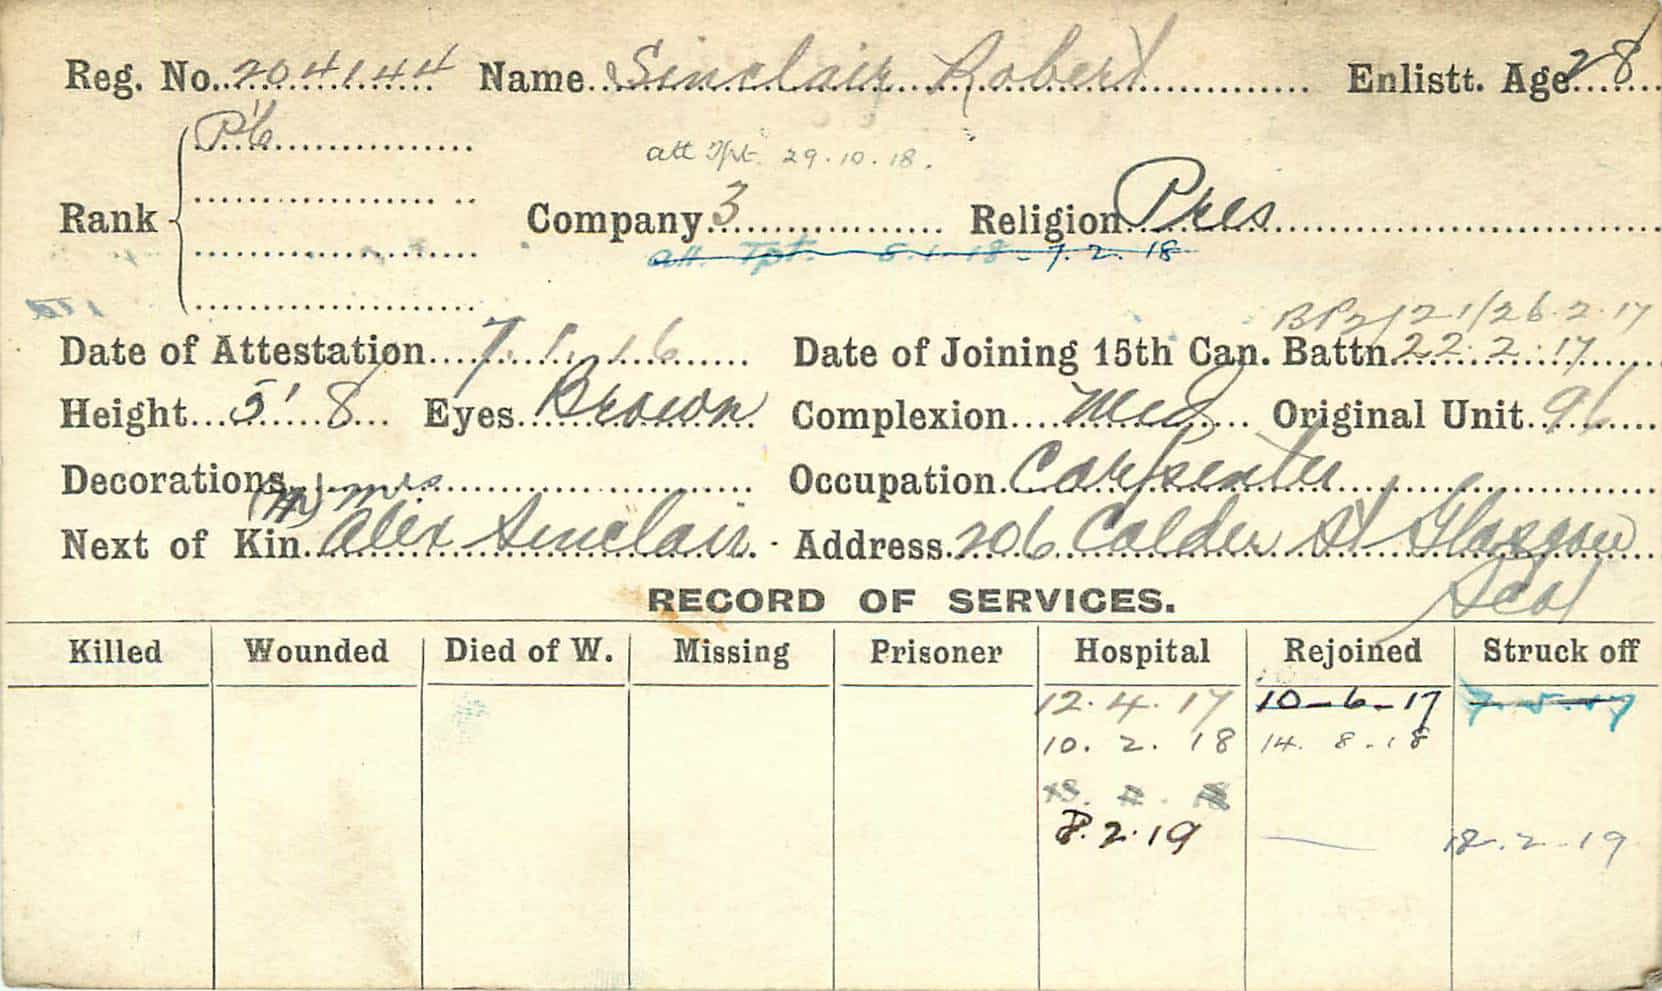 Reg. No. 204144 Name Sinclair Robert Enlistt. Age 28
Pte
att Tpt. 29.10.18.
Rank Company 3 Religion Pres
att. Tpt. 8.1.18 - 7.2.18
BP2/121/26.2.17
Date of Attestation 7.1.16 Date of Joining 15th Can. Battn. 22.2.17
Height 5' 8 Eyes Brown Complexion Med Original Unit 96
Decorations Occupation Carpenter
(M) Mrs
Next of Kin Alex Sinclair Address 206 Calder St Glasgow
Scot
RECORD OF SERVICES.
Killed Wounded Died of W. Missing Prisoner Hospital Rejoined Struck off
12.4.17 10-6-17 7.5.17
10.2.18 14.8.18
8.2.19 — 18.2.19